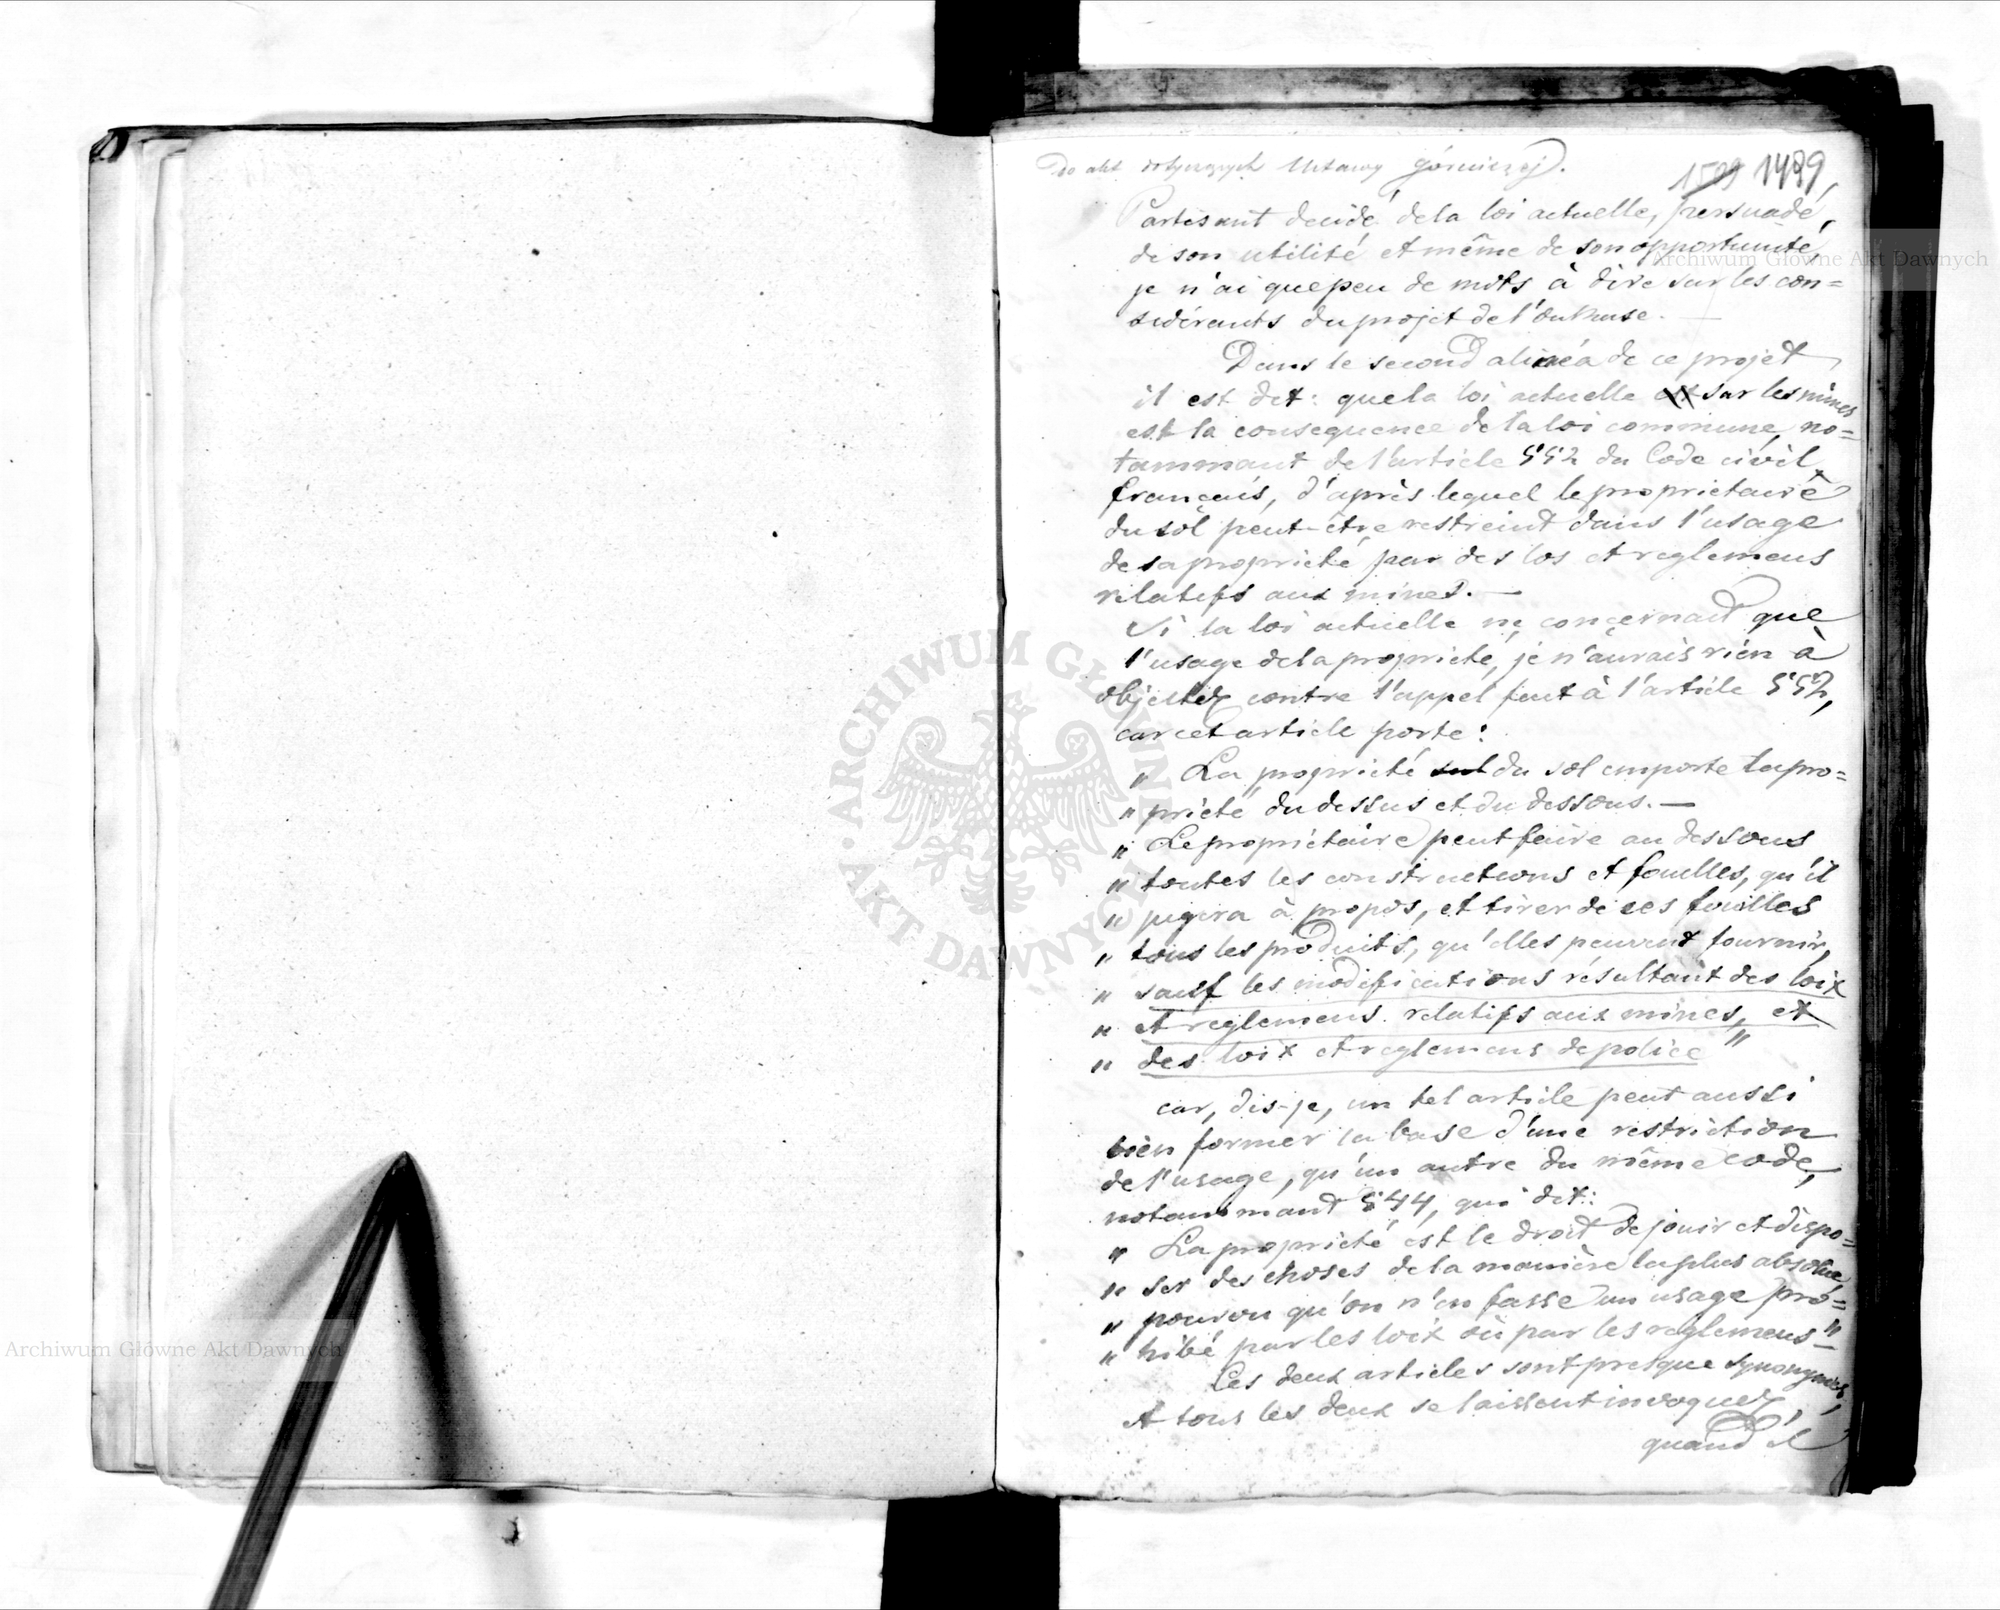 Do akt dotyczących Ustawy górniczej.
1509 1489
Partisant decidé de la loi actuelle, persuadé,
de son utilité et même de son opportunité,
je n'ai que peu de mots à dire sur les con=
sidérants du projet de l'Oukase. —
Dans le second alinéa de ce projet
il est dit: que la loi actuelle est sur les mines
est la consequence de la loi commune, no=
tammant de l'article 552 du Code civil
français, d'après lequel le proprietairè
du sol peut-être restreint dans l'usage
de sa proprieté par des lois et reglemens
relatifs aux mines. —
Si la loi actuelle ne concernait que
l'usage de la proprieté, je n'aurais rien à
objecter contre l'appel fait à l'article 552,
car cet article porte:
„ La proprieté sul du sol emporte la pro=
„ prieté du dessus et du dessous. —
„ Le propriétaire peut faire au dessous
„ toutes les constructions et fouilles, qu'il
„ jugera à propos, et tirer de ces fouilles
„ tous les produits, qu'elles peuvent fournir,
„ sauf les modifications résultant des loix
„ et reglemens relatifs aux mines, et
„ des loix et reglemens de police "
car, dis-je, un tel article peut aussi
bien former la base d'une restriction
de l'usage, qu'un autre du même code,
notammant 544, qui dit:
„ La proprieté est le droit de jouir et dispo=
„ ser des choses de la manière la plus absolue,
„ pourvu qu'on n'en fasse un usage pro=
„ hibé par les loix où par les reglemens "—
Les deux articles sont presque synonymes,
et tous les deux se laissent invoquer,
quand il
Archiwum Główne Akt Dawnych
Archiwum Główne Akt Dawnych
ARCHIWUM GŁÓWNE AKT DAWNYCH